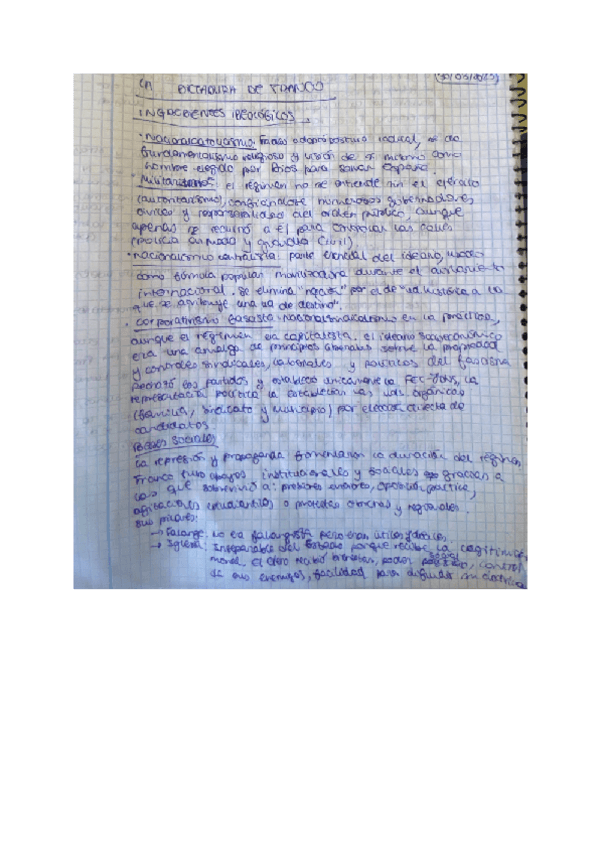 (30/03/2023)
LA DICTADURA DE FRANCO
INGREDIENTES IDEOLÓGICOS
· Nacionalcatolicismo: Franco adoptó postura radical, de
fundamentalismo religioso y visión de sí mismo como
hombre elegido por Dios para salvar España.
· Militarismo: el régimen no se entiende sin el ejército
(autoritarismo), numerosos gobernadores
civiles y responsabilidad del orden público, aunque
apenas se recurrió a él para controlar las calles
(policía armada y guardia civil).
· Nacionalismo centralista: parte esencial del ideario, usado
como fórmula popular movilizadora durante el aislamiento
internacional. Se elimina "nación" por el de "ud. histórica a la
que se atribuye una ud de destino".
· Corporativismo fascista: nacionalsindicalismo en la práctica,
aunque el régimen era capitalista. El ideario socioeconómico
era una amalgama de principios liberales sobre la propiedad
y controles sindicales, laborales y políticos del fascismo
Rechazó los partidos y estableció únicamente la FET-JONS, la
representación política la establecían las uds orgánicas
(familia, sindicato y municipio) por elección directa de
candidatos.
BASES SOCIALES
La represión y propaganda fomentaron la duración del régimen,
Franco tuvo apoyos institucionales y sociales gracias a
los que sobrevivió a: presiones oposición
o protestas obreras y regionales.
Sus pilares:
→ Falange: no era falangista pero eran útiles
→ Iglesia: Inseparable del Estado porque recibe la legitimidad
moral. El clero recibió poder social control
de sus enemigos, facilidad para difundir su doctrina